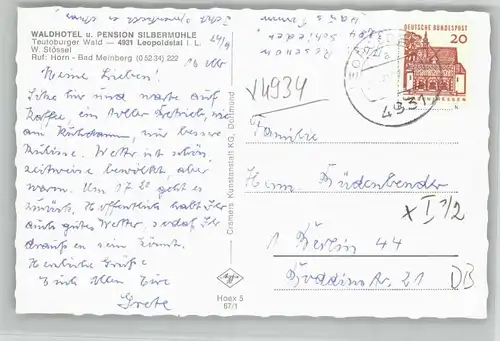 WALDHOTEL u. PENSION SILBERMÜHLE
Teutoburger Wald — 4931 Leopoldstal i. L.
W. Stössel
Ruf: Horn - Bad Meinberg (0 52 34) 222
24/9
16 Uhr
Meine Lieben!
Sitze hier und warte auf
Kaffee, ein toller Betrieb, wie
am Kuhdamm, nur bessere
Wetter ist schön,
zeitweise bewölkt, aber
warm. Um 17.30 geht es
zurück. Hoffentlich habt Ihr
auch gutes Wetter, sodaß Ihr
draußen sein könnt.
Herzliche Grüße
Euch allen Eure
Grete
Cramers Kunstanstalt KG, Dortmund
Hoex 5
67/1
DEUTSCHE BUNDESPOST
20
4931
x4934
Familie
Herm. Büdenbender
x I 1/2
1 Berlin 44
Boddinstr. 21
DB